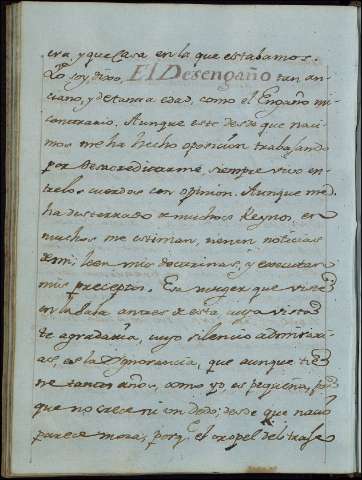 era, y que Casa en la que estabamos.
Yo soy, dixo, El Desengaño tan an-
ciano, y de tanta edad, como el Engaño mi
contrario. Aunque este desde que naci-
mos me ha hecho oposicion trabajando
por desacreditarme, siempre vivo en-
tre los cuerdos con opinion. Aunque me
ha desterrado de muchos Reynos, en
muchos me estiman, tienen noticias
de mi, leen mis doctrinas, y executan
mis preceptos. Esa muger que viste
en la Sala antes de esta, cuya vista
te agradaria, cuyo silencio admirari-
as, es la Ygnorancia, que aunque tie-
ne tantos años, como yo, es pequeña, por
que no crece ni un dedo; desde que nacio
parece moza, porq. el oropel del trage